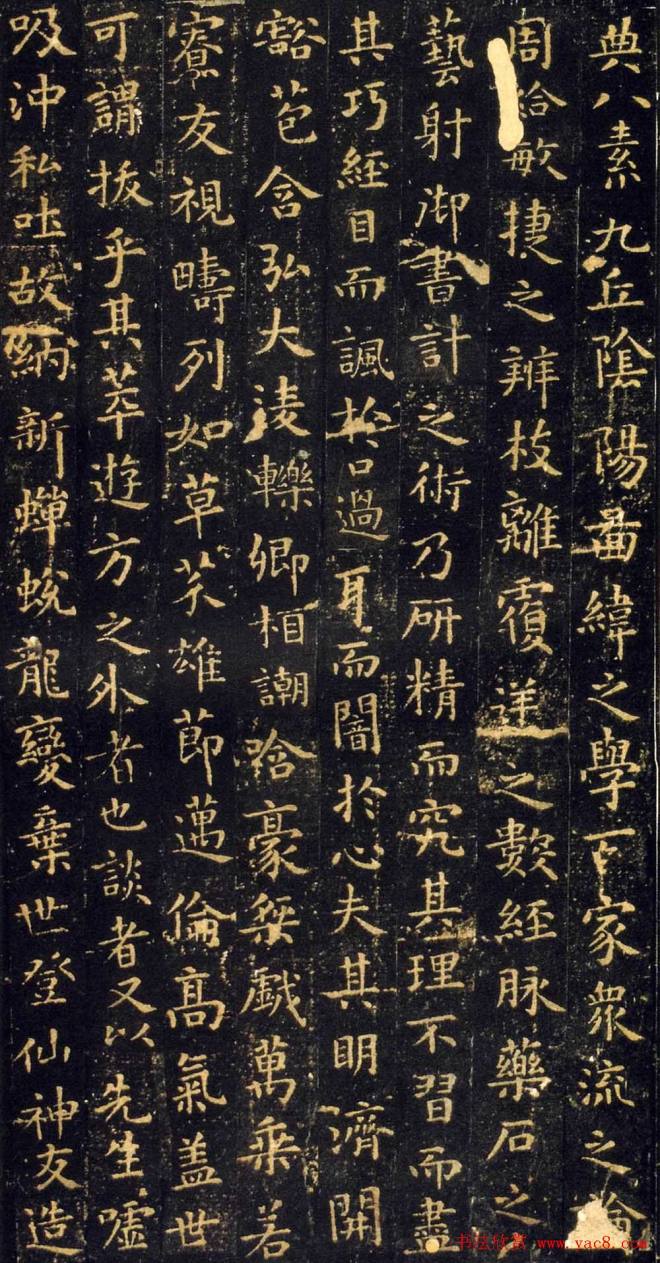 典八素九丘陰陽啚緯之學百家衆流之論
周給敏捷之辨枝離覆逆之數經脉藥石之
藝射御書計之術乃研精而究其理不習而盡
其巧經目而諷於口過耳而闇於心夫其明濟開
豁苞含弘大淩轢卿相謿哈豪桀戲萬乘若
寮友視疇列如草芥雄節邁倫高氣蓋世
可謂拔乎其萃遊方之外者也談者又以先生噓
吸沖和吐故納新蟬蛻龍變棄世登仙神友造
书法欣赏 www.yac8.com